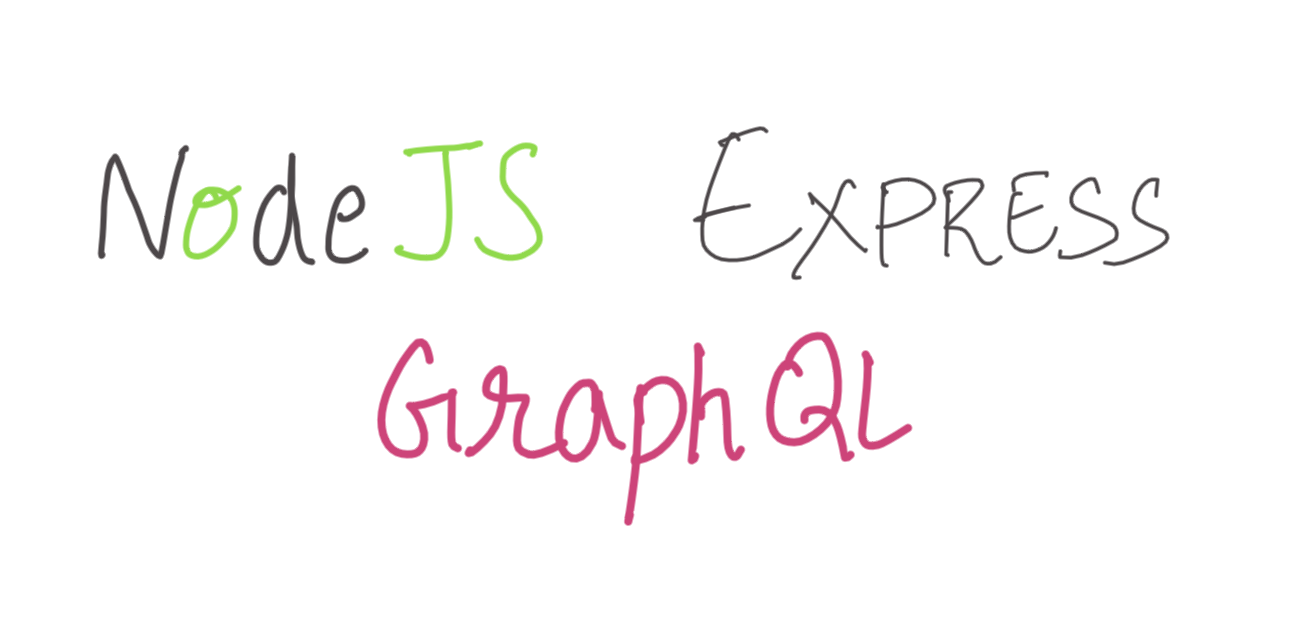 NodeJS EXPRESS
GraphQL